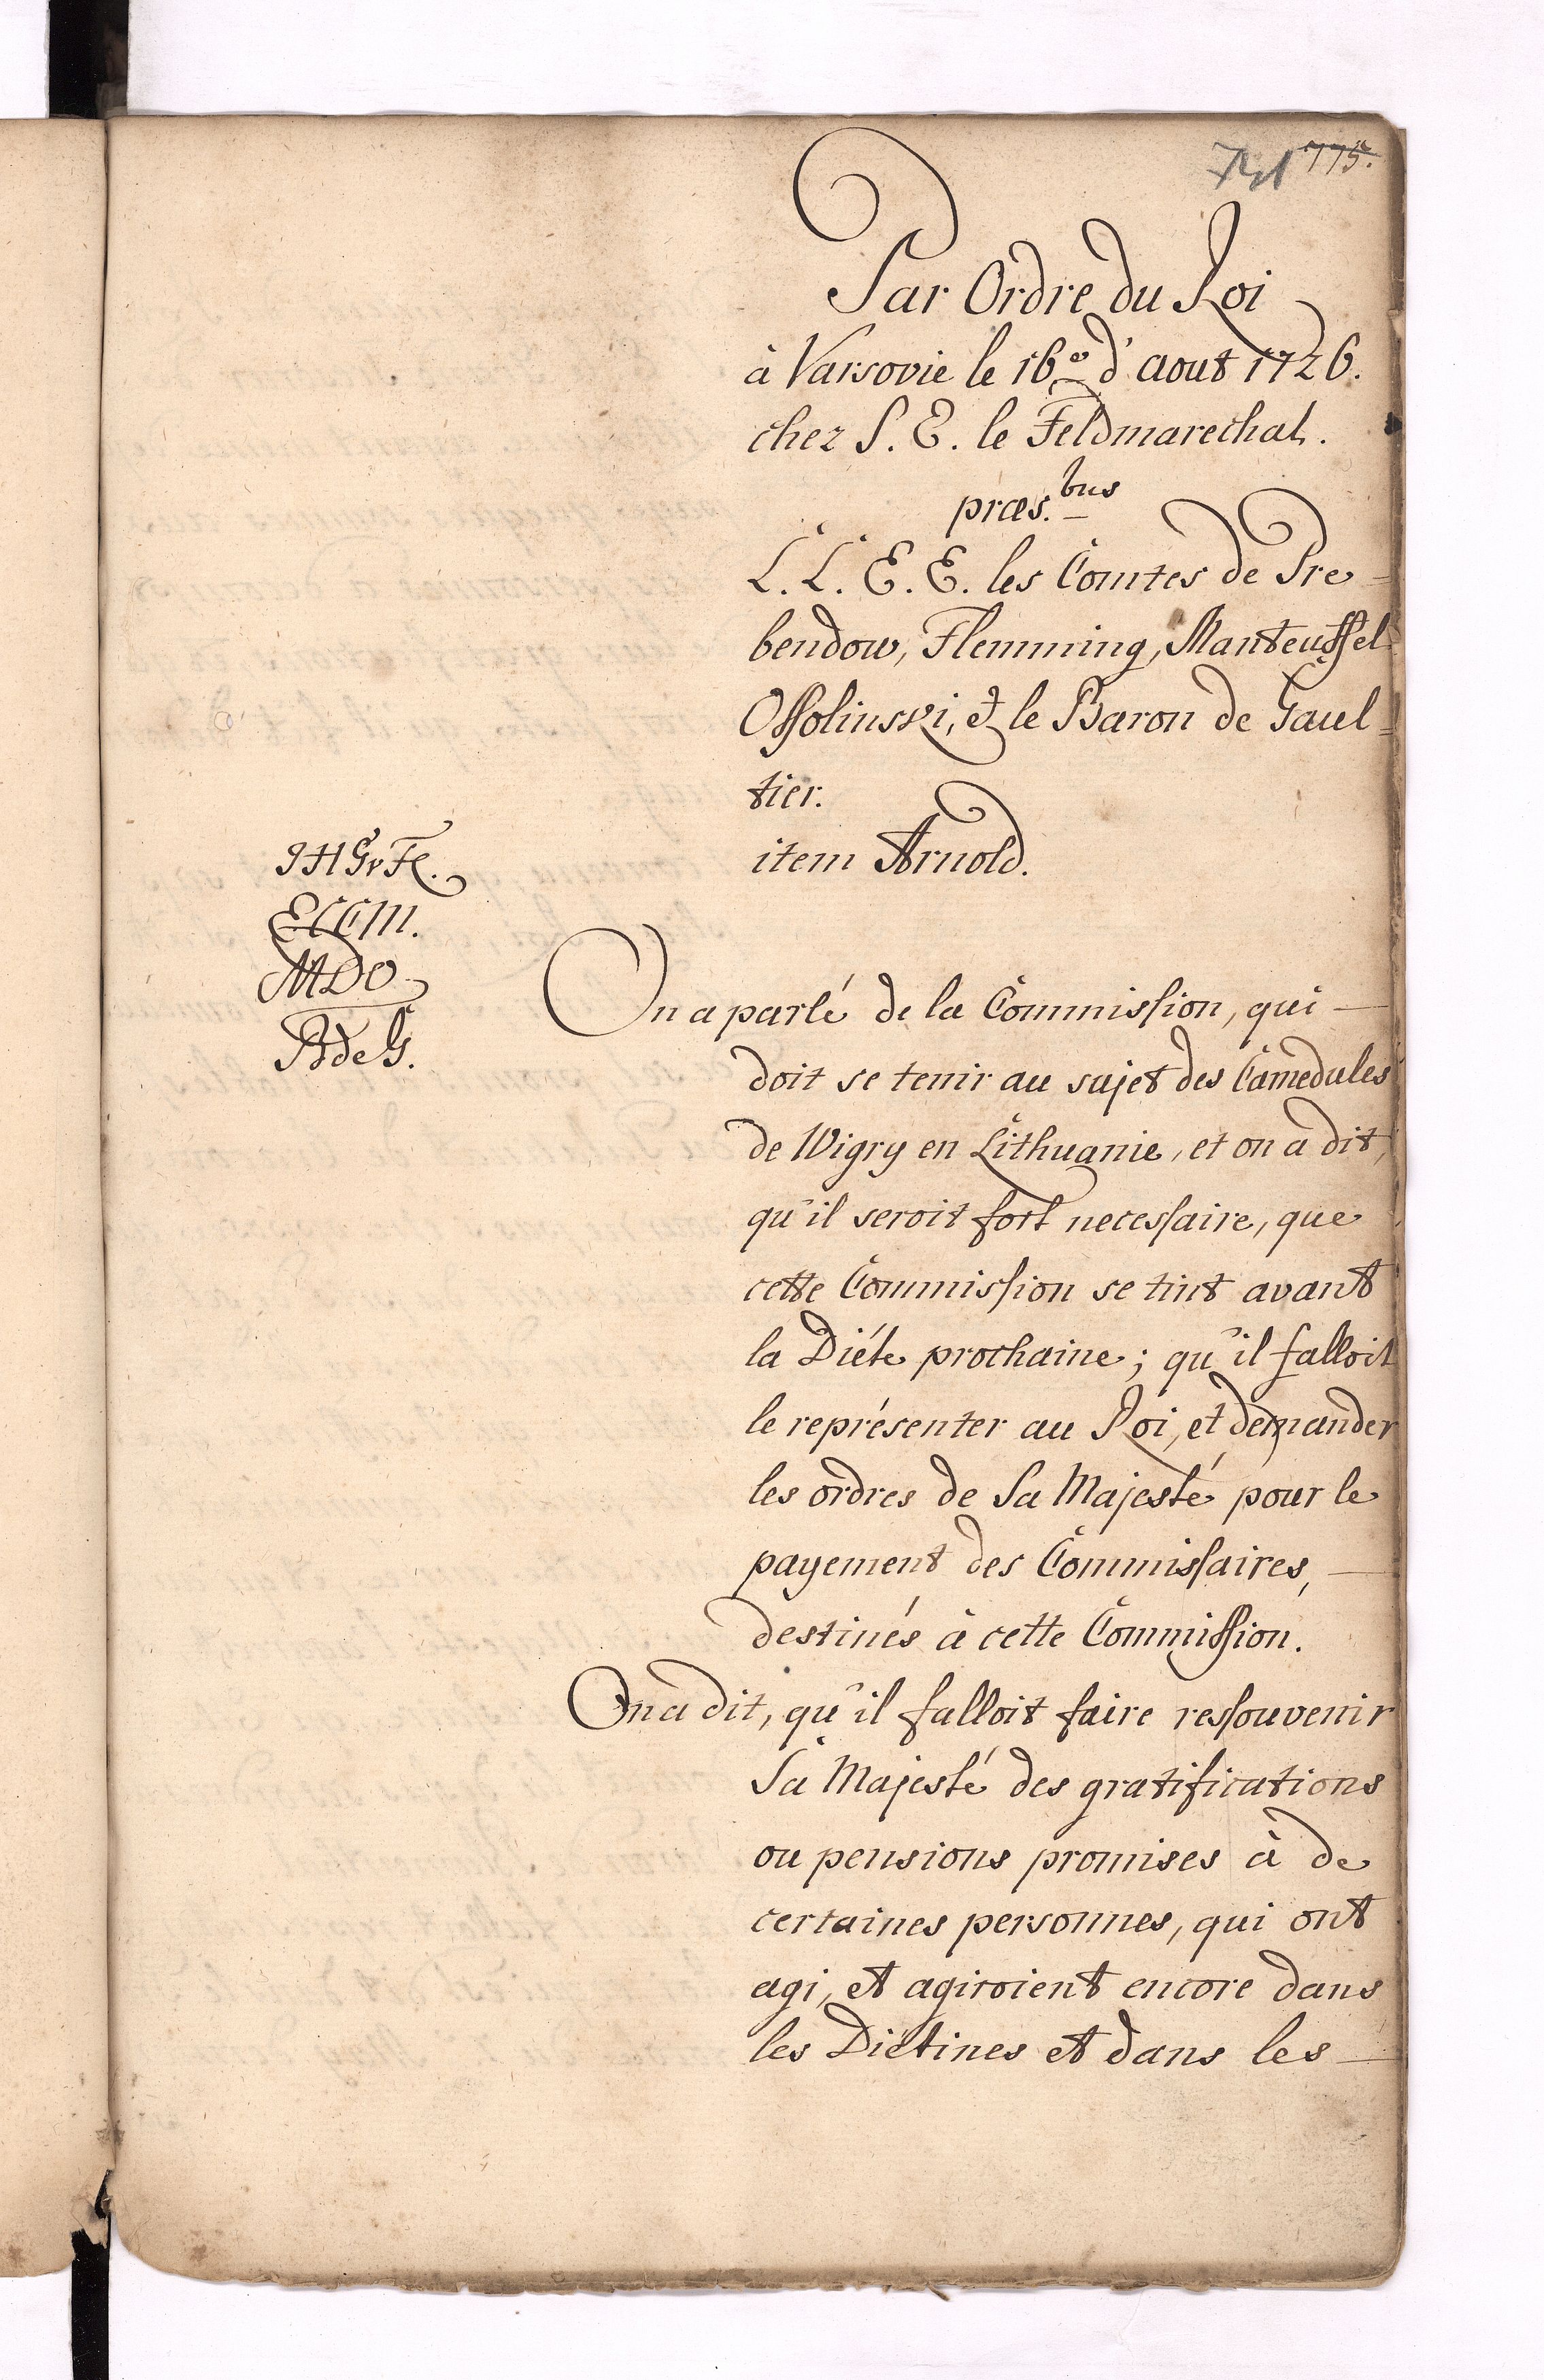 775.
Par Ordre du Roi
à Varsovie le 16.e d'aout 1726.
chez S. E. le Feldmarechal.
præs.bus
L. L. E. E. les Comtes de Pre-
bendow, Flemming, Manteuffel
Ossolinski, et le Baron de Gaul=
tier.
item Arnold.
JHGvFl.
ECCM.
MDO
BdeG.
On a parlé de la Commission, qui
doit se tenir au sujet des Camedules
de Wigry en Lithuanie, et on a dit,
qu'il seroit fort necessaire, que
cette Commission se tint avant
la Diéte prochaine; qu'il falloit
le représenter au Roi, et demander
les ordres de Sa Majesté pour le
payement des Commissaires,
destinés à cette Commission.
On a dit, qu'il falloit faire ressouvenir
Sa Majesté des gratifications
ou pensions promises à de
certaines personnes, qui ont
agi, et agiroient encore dans
les Diétines et dans les